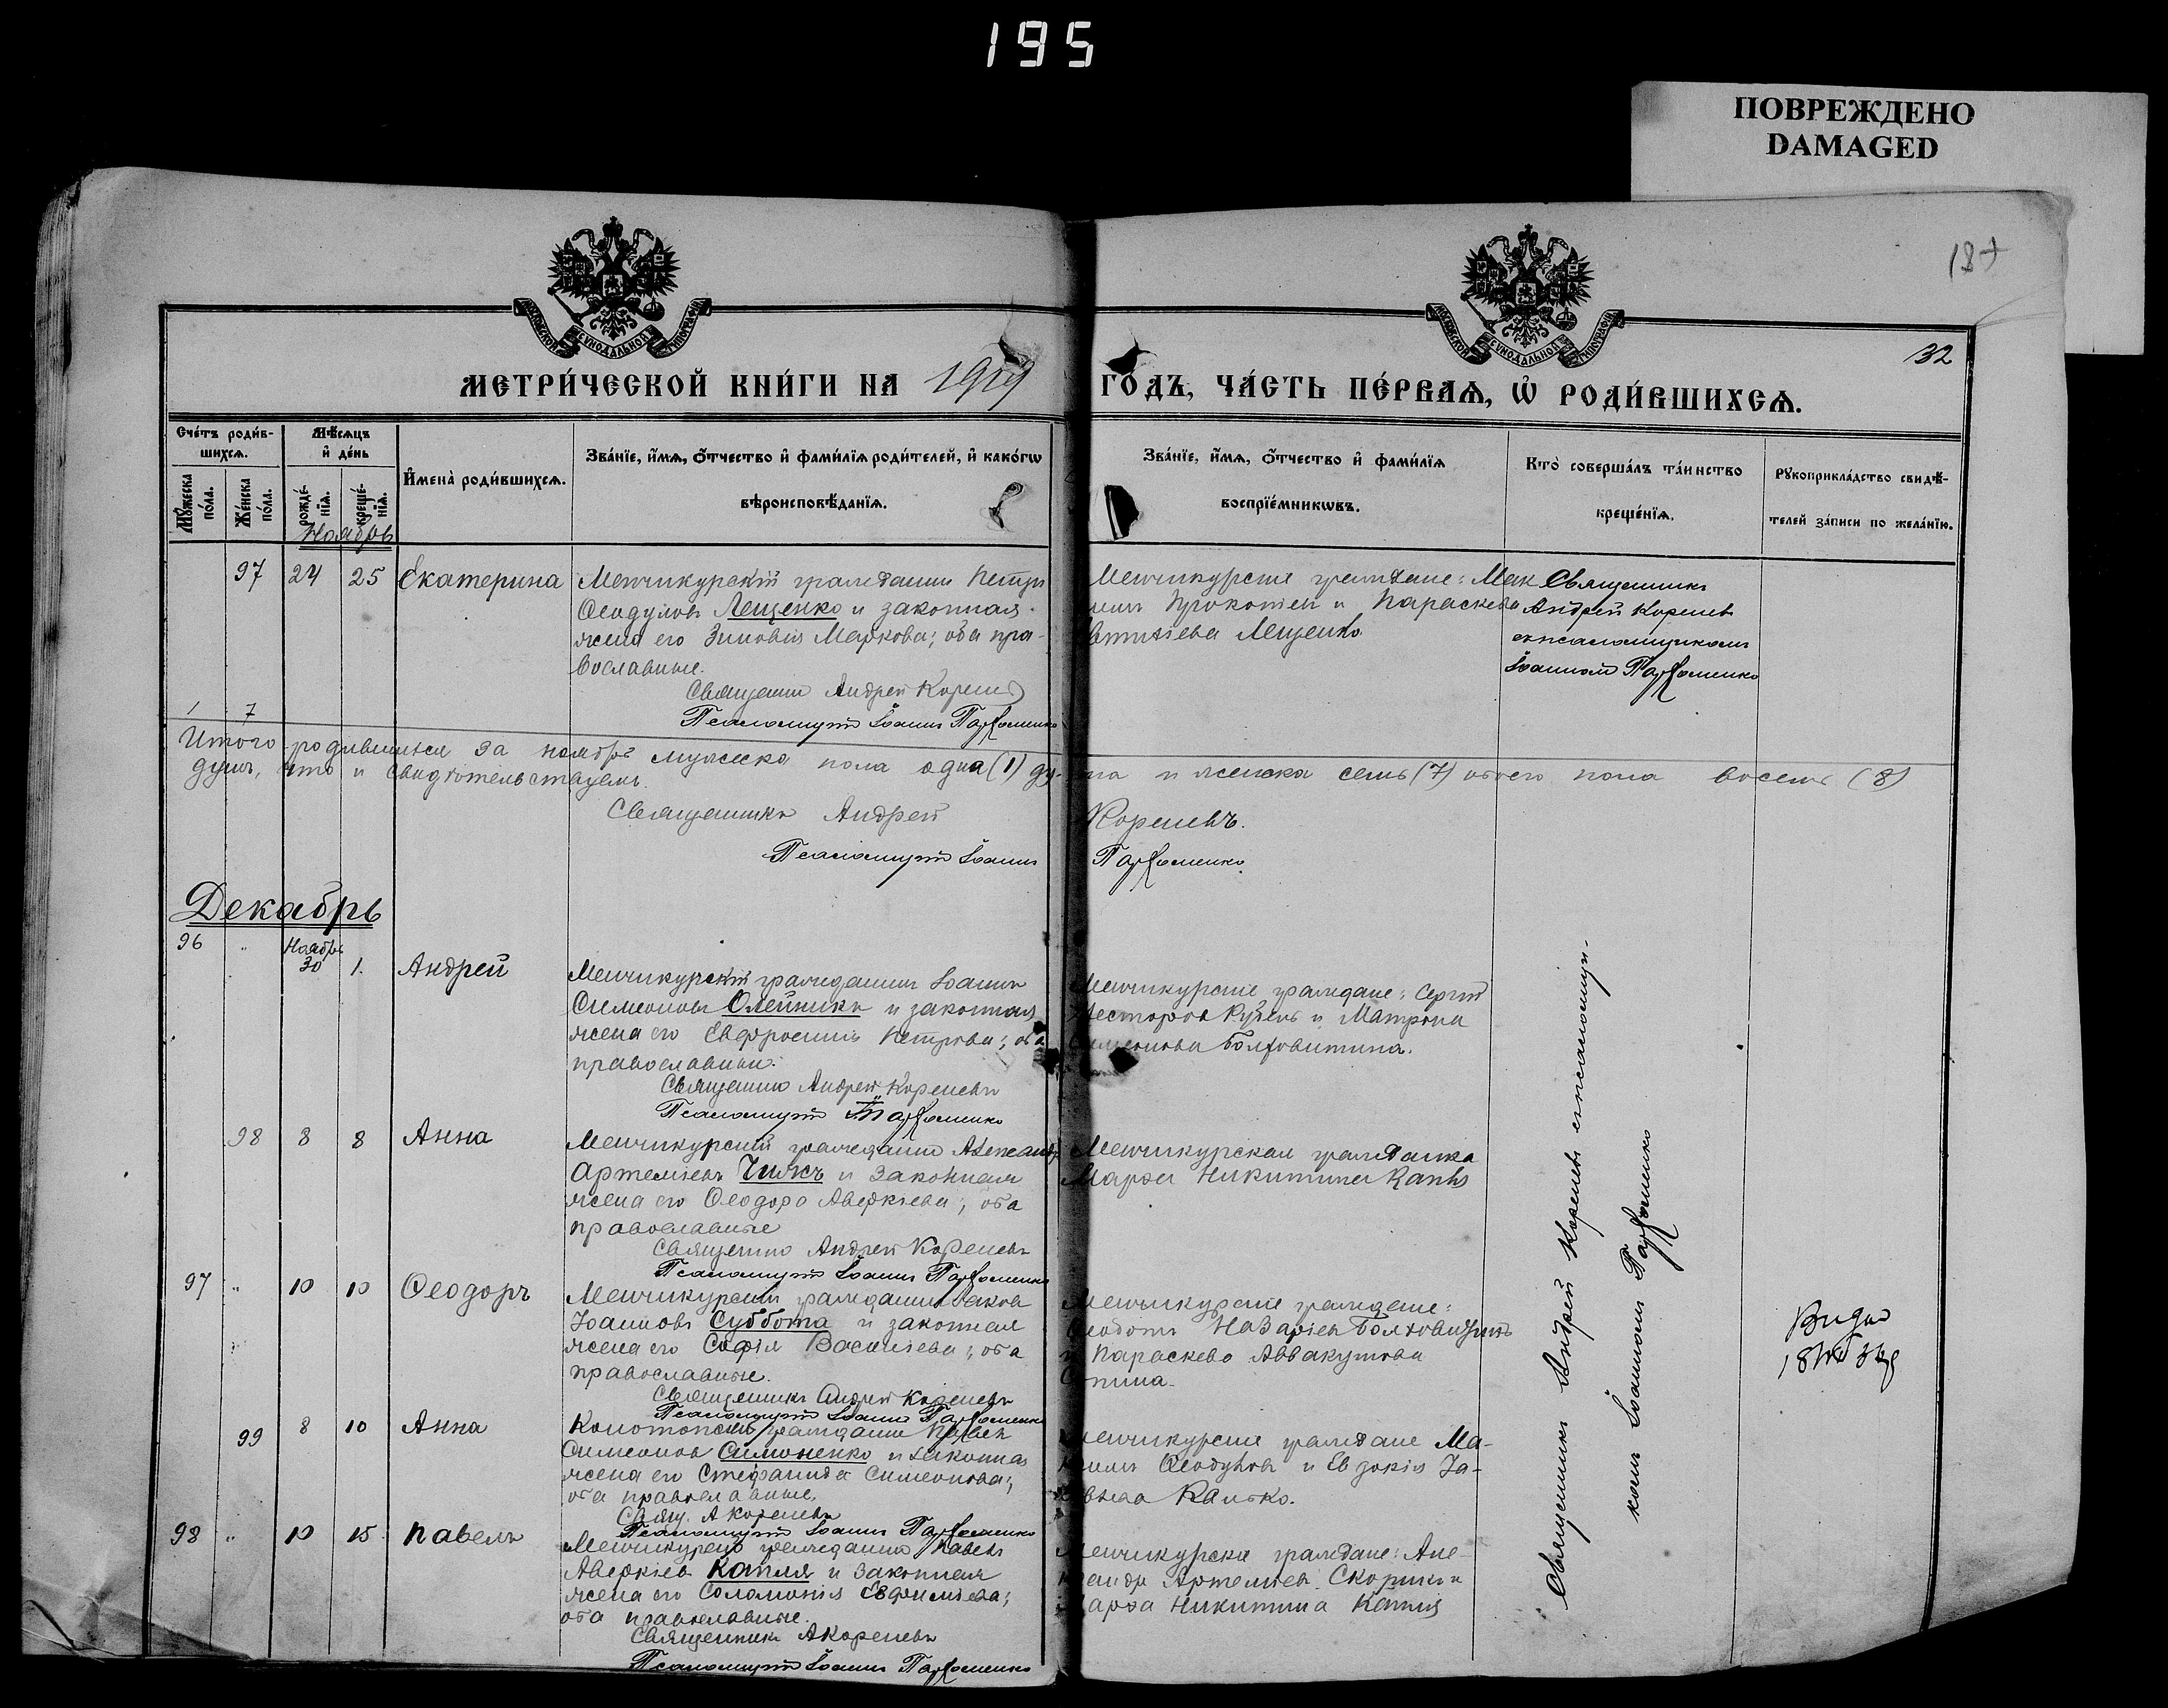 195
ПОВРЕЖДЕНО
DAMAGED
32
МОСКОВСКОЙ СѴНОДАЛЬНОЙ ТИПОГРАФІИ
МОСКОВСКОЙ СѴНОДАЛЬНОЙ ТИПОГРАФІИ
МЕТРИ́ЧЕСКОЙ КНИ́ГИ НА 1919 ГО́ДЪ, ЧА́СТЬ ПЕ́РВАѦ, Ѡ҆ РОДИ́ВШИХСѦ.
Сче́тъ роди́в-
шихсѧ.
Мѣ́сѧцъ
и҆ де́нь
Мꙋ́жеска по́ла.
Же́нска по́ла.
рожде́-нїѧ.
креще́-нїѧ.
И҆мена̀ роди́вшихсѧ.
Зва́нїе, и҆́мѧ, ѻ҆́тчество и҆ фами́лїѧ роди́телей, и҆ како́гѡ
вѣроисповѣ́данїѧ.
Зва́нїе, и҆́мѧ, ѻ҆́тчество и҆ фами́лїѧ
воспрїе́мникѡвъ.
Кто̀ соверша́лъ та́инство
креще́нїѧ.
Рꙋкоприкла́дство свидѣ́-
телей за́писи по жела́нїю.
Ноябрь
97 24 25 Екатерина
Менчикурскій гражданинъ Петръ
Ѳеодуловъ Лещенко и законная
жена его Зиновія Маркова; оба пра-
вославные.
Священникъ Андрей Кореневъ
Псаломщикъ Іоаннъ Пархоменко
Менчикурскіе граждане: Мак
Прокопіей и Параскева
Лещенко
Священникъ
Андрей Кореневъ
съ псаломщикомъ
Іоанномъ Пархоменко
1 7
Итого родившихся за ноябрь мужеска пола одна (1) ду-ша и женска семь (7) обоего пола восемь (8)
душъ, что и свидѣтельствуемъ.
Священникъ Андрей Кореневъ.
Псаломщикъ Іоаннъ Пархоменко.
Декабрь
96 " Ноябрь 30 1. Андрей
Менчикурскій гражданинъ Іоаннъ
Симеоновъ Олейникъ и законная
жена его Евфросинія Петрова; оба
православные.
Священникъ Андрей Кореневъ
Псаломщикъ І. Пархоменко
Менчикурскіе граждане: Сергій
Несторовъ и Матрона
Симеонова Болховитина.
98 8 8 Анна
Менчикурскій гражданинъ Александръ
Артеміевъ Чижъ и законная
жена его Ѳеодора Аверкіева; оба
православные
Священникъ Андрей Кореневъ
Псаломщикъ Іоаннъ Пархоменко
Менчикурская гражданка
Марѳа Никитина
97 " 10 10 Ѳеодоръ
Менчикурскій гражданинъ Іаковъ
Іоанновъ Суббота и законная
жена его Софія Васильева; оба
православные.
Священникъ Андрей Кореневъ
Псаломщикъ Іоаннъ Пархоменко
Менчикурскіе граждане:
Назаріевъ Болховитинъ
и Параскева Аввакумова
99 8 10 Анна
Конотопскій гражданинъ Павелъ
Симеоновъ Симоненко и законная
жена его Стефанида Симеонова;
оба православные.
Свящ. А Кореневъ
Псаломщикъ Іоаннъ Пархоменко
Менчикурскіе граждане Ма-
ксимъ Ѳеодуловъ и Евдокія За-
Калько.
98 " 10 15 Павелъ
Менчикурскій гражданинъ Павелъ
Аверкіевъ Капля и законная
жена его Соломонія Евфиміева;
оба православные.
Священникъ А Кореневъ
Псаломщикъ Іоаннъ Пархоменко
Менчикурскіе граждане: Але-
ксандръ Артеміевъ Скорикъ и
Марѳа Никитина Капля
Священникъ Андрей Кореневъ съ псаломщи-
комъ Іоанномъ Пархоменко